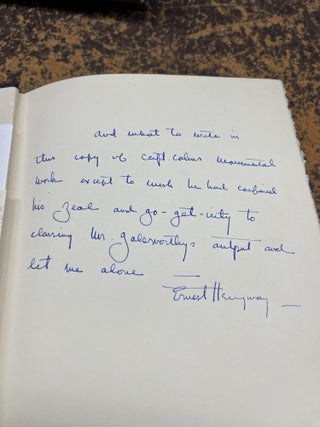 and what to write in
this copy of Capt. Cohns monumental
work except to wish he had confined
his zeal and go-get-ivity to
classing Mr. Galsworthys output and
let me alone —
Ernest Hemingway —